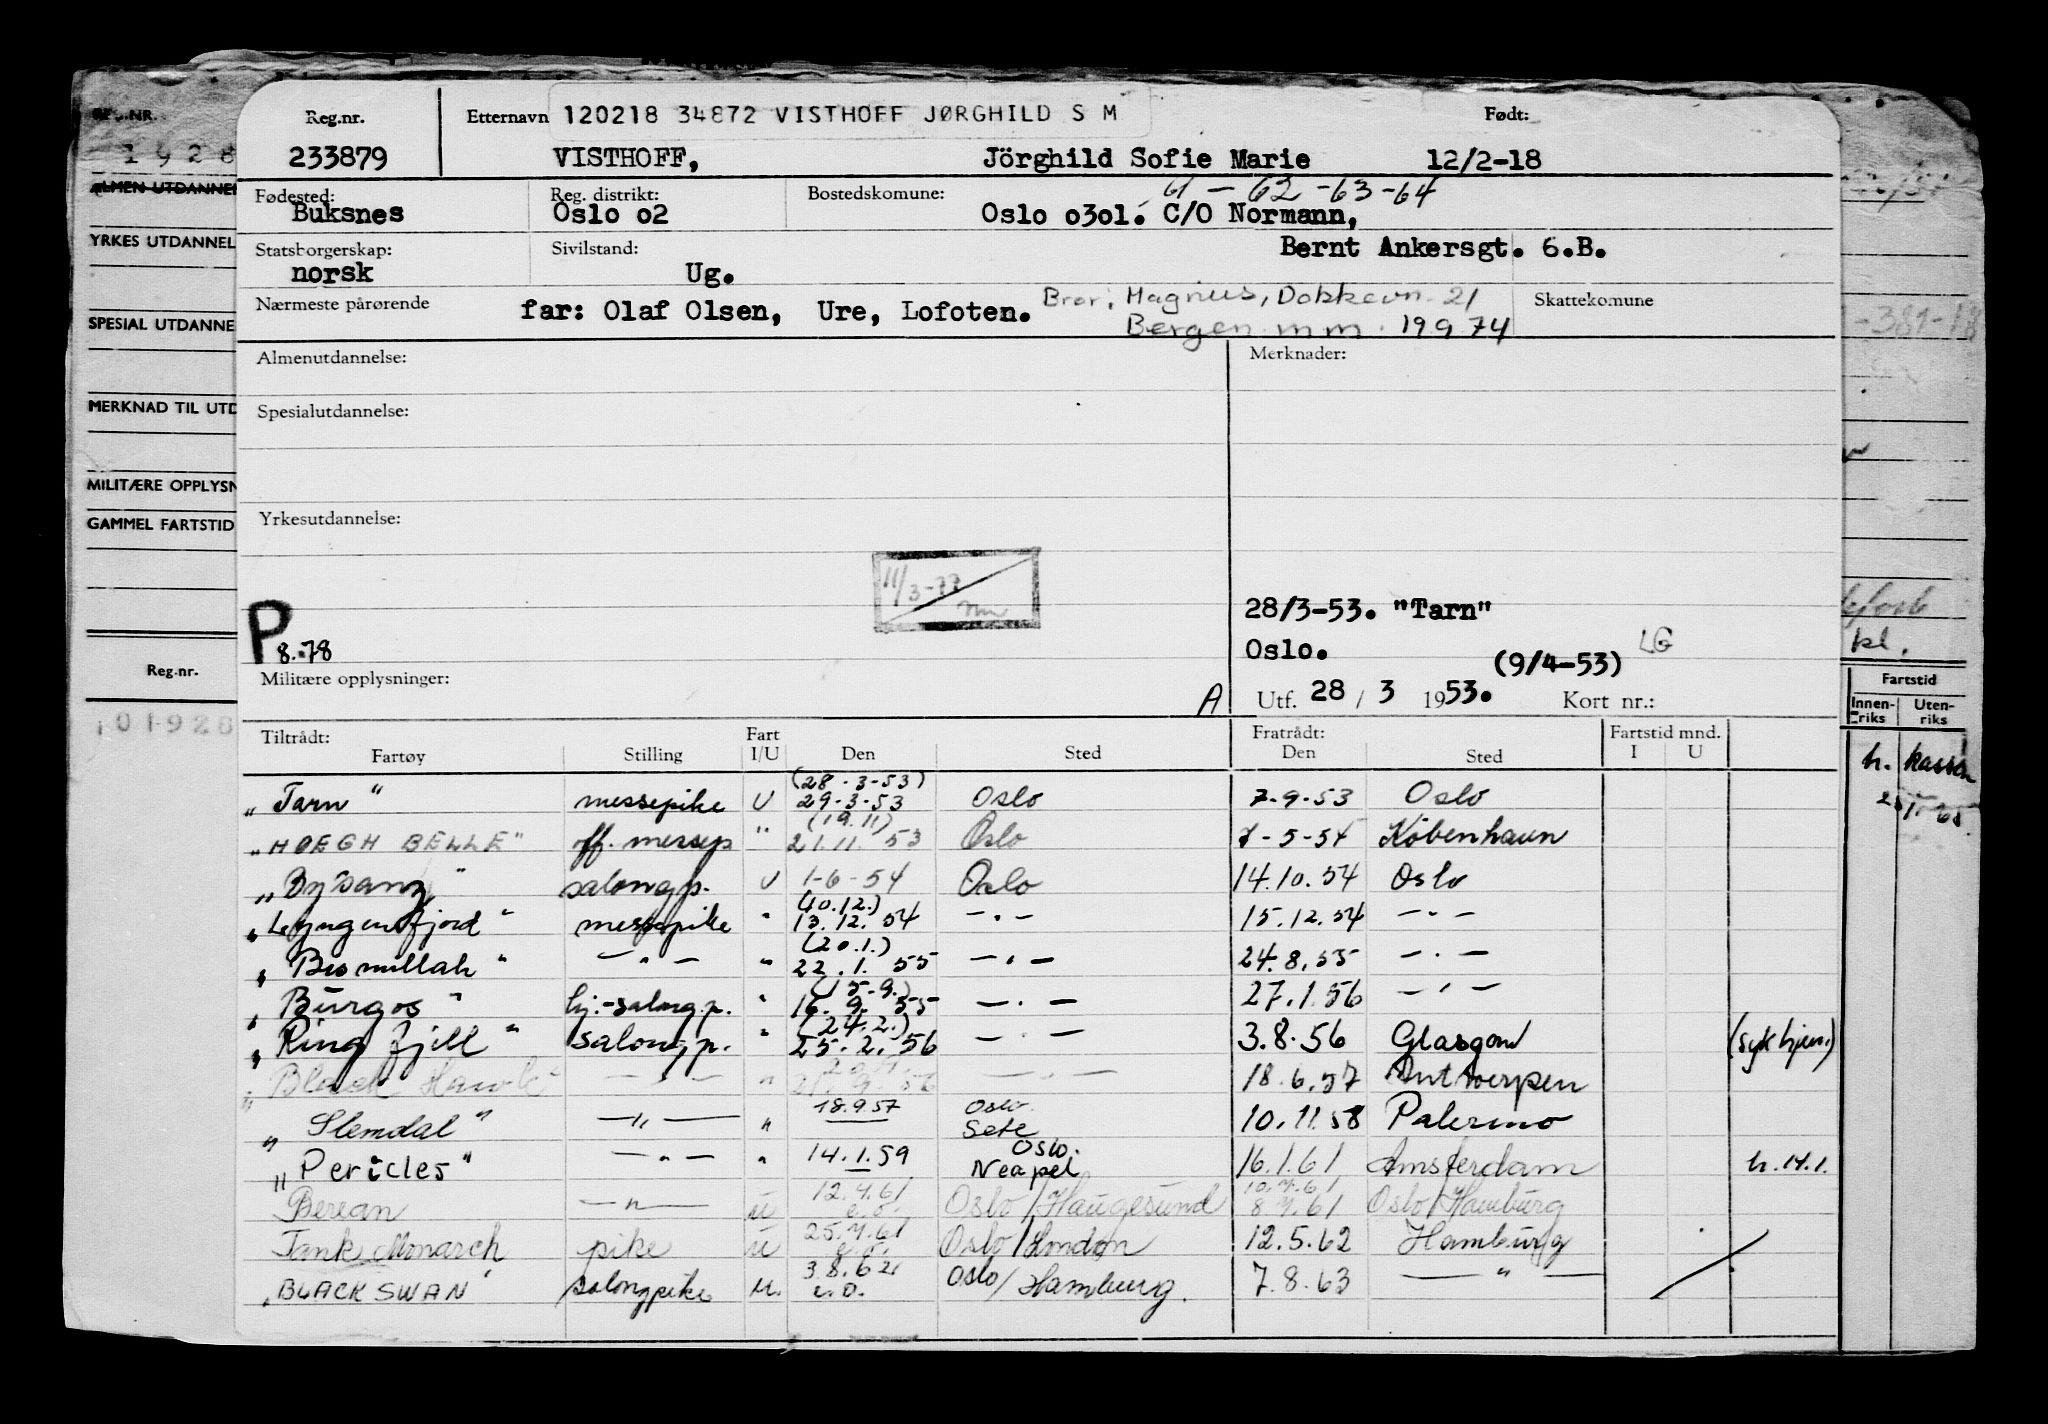 Reg.nr. Etternavn 120218 34872 VISTHOFF JØRGHILD S M Født:
233879 VISTHOFF, Jörghild Sofie Marie 12/2-18
61 - 62 - 63 - 64
Fødested: Reg. distrikt: Bostedskomune:
Buksnes Oslo o2 Oslo o3o1. C/O Normann,
Statsborgerskap: Sivilstand: Bernt Ankersgt. 6.B.
norsk Ug.
Nærmeste pårørende far: Olaf Olsen, Ure, Lofoten. Bror: Magnus, Dokkevn. 21 Skattekomune
Bergen m m. 19.9.74
Almenutdannelse: Merknader:
Spesialutdannelse:
Yrkesutdannelse:
11/3-77
28/3-53. "Tarn"
P 8.-78 Oslo. LG
(9/4-53)
Militære opplysninger: A Utf. 28 / 3 1953. Kort nr.:
Tiltrådt: Fart Fratrådt: Fartstid mnd.
Fartøy Stilling I/U Den Sted Den Sted I U
(28-3-53)
„Tarn" messepike U 29-3-53 Oslo 7-9-53 Oslo
(19.11)
„HØEGH BELLE" off. messep " 21.11. 53 Oslo 7-5-54 København
„Bysanz" salongp. U 1-6-54 Oslo 14.10.54 Oslo
(10.12.)
„Lyngenfjord" messepike " 13.12.54 — " — 15.12.54 — " —
(20.1.)
„Bismillah" — " — " 22.1.55 — " — 24.8.55 — " —
(15.9.)
„Burgos" hj.-salongp. " 16.9.55 — " — 27.1.56 — " —
(24.2.)
„Ringfjell" salongp. " 25.2.56 — " — 3.8.56 Glasgow (sykhjem.)
„Black Hawk" — " — " 21.9.56 — " — 18.6.57 Antwerpen
„Slemdal" — " — " 18.9.57 Oslo. Sete 10.11.58 Palermo
„Pericles" — " — " 14.1.59 Oslo. Neapel 16.1.61 Amsterdam h.14.1.
10.7.61
Berean — " — u 12.4.61 Oslo/Haugesund 8.7.61 Oslo/Hamburg
Tank Monarch pike u 25.7.61 Oslo/London 12.5.62 Hamburg
„BLACK SWAN" salongpike u. 3.8.62 Oslo/Hamburg. 7.8.63 — " —
REG.NR.
1928
ALMEN UTDANNEL
YRKES UTDANNEL
SPESIAL UTDANNE
MERKNAD TIL UTD
MILITÆRE OPPLYSN
GAMMEL FARTSTID
Reg.nr.
101928
-381-18
kl.
Fartstid
Innenriks Utenriks
h. kassa